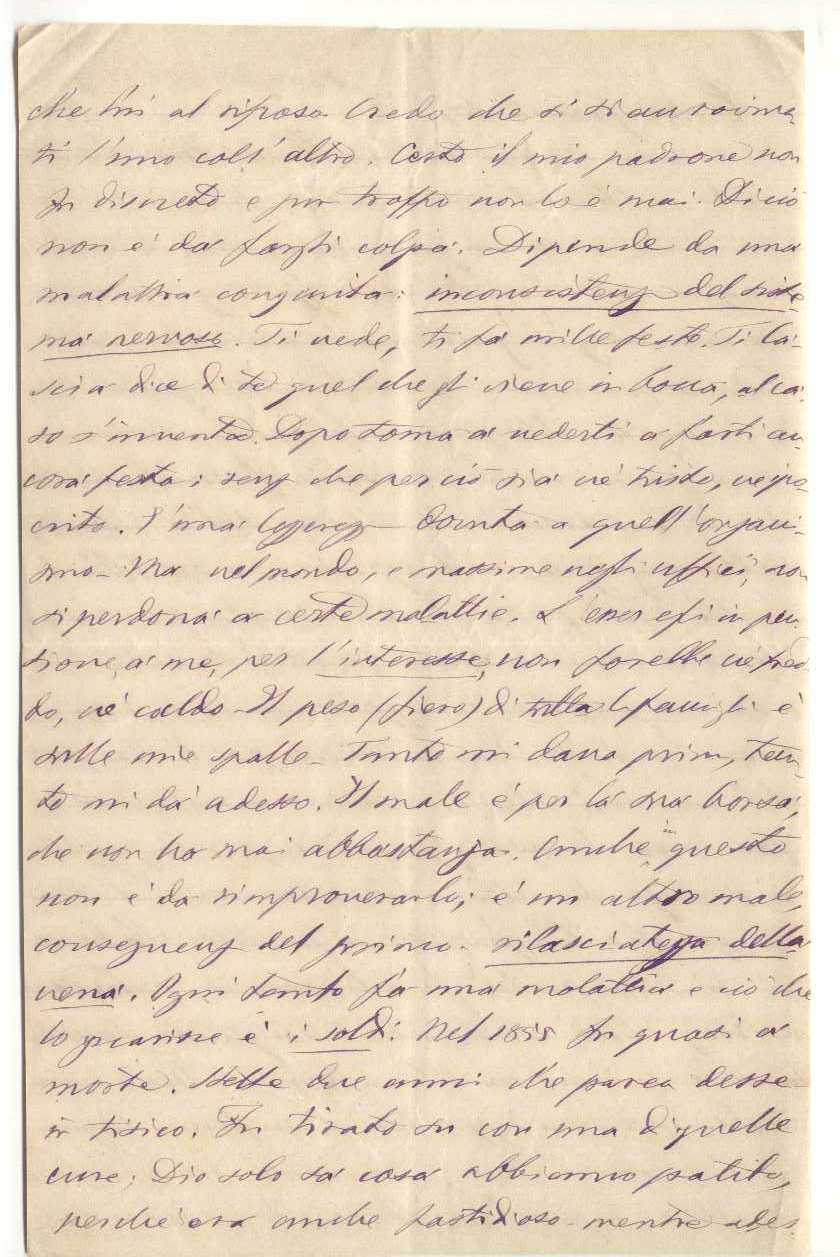 che fui al riposo. Credo che si si au
ti l'uno coll'altro. Certo il mio padrone non
fu discreto e pur troppo non lo è mai. Di ciò
non è da fargli colpa. Dipende da una
malattia congenita: inconsistenz del siste-
ma nervoso. Ti vede, ti fa mille feste. Ti la-
scia dice di te quel che gli viene in bocca, al ca-
so s'inventa. Dopo torna a vederti a farti an-
cora festa; senz che per ciò sia nè tristo, nè ipo-
crita. È una leggerezz dovuta a quell'organi-
smo - Ma nel mondo, e massime negli uffici, non
si perdona a certe malattie. L'esser egli in pen-
sione, a me, per l'interesse, non farebbe nè fred-
do, nè caldo - Il peso (fiero) di tutta la famigli è
sulle mie spalle - Tanto mi dava prim, tan-
to mi dà adesso. Il male è per la sua borsa,
che non ha mai abbastanza. Anche questo
non è da rimproverarlo; è un altro male,
conseguenz del primo - rilasciatezza della
vena. Ogni tanto fa una malattia e ciò che
lo guarisce è i soldi. Nel 1855 fu quasi a
morte. Stette due anni che parea desse
in tisico. Fu tirato su con una di quelle
cure; Dio solo sa cosa abbiamo patito,
perchè era anche fastidioso - mentre ades